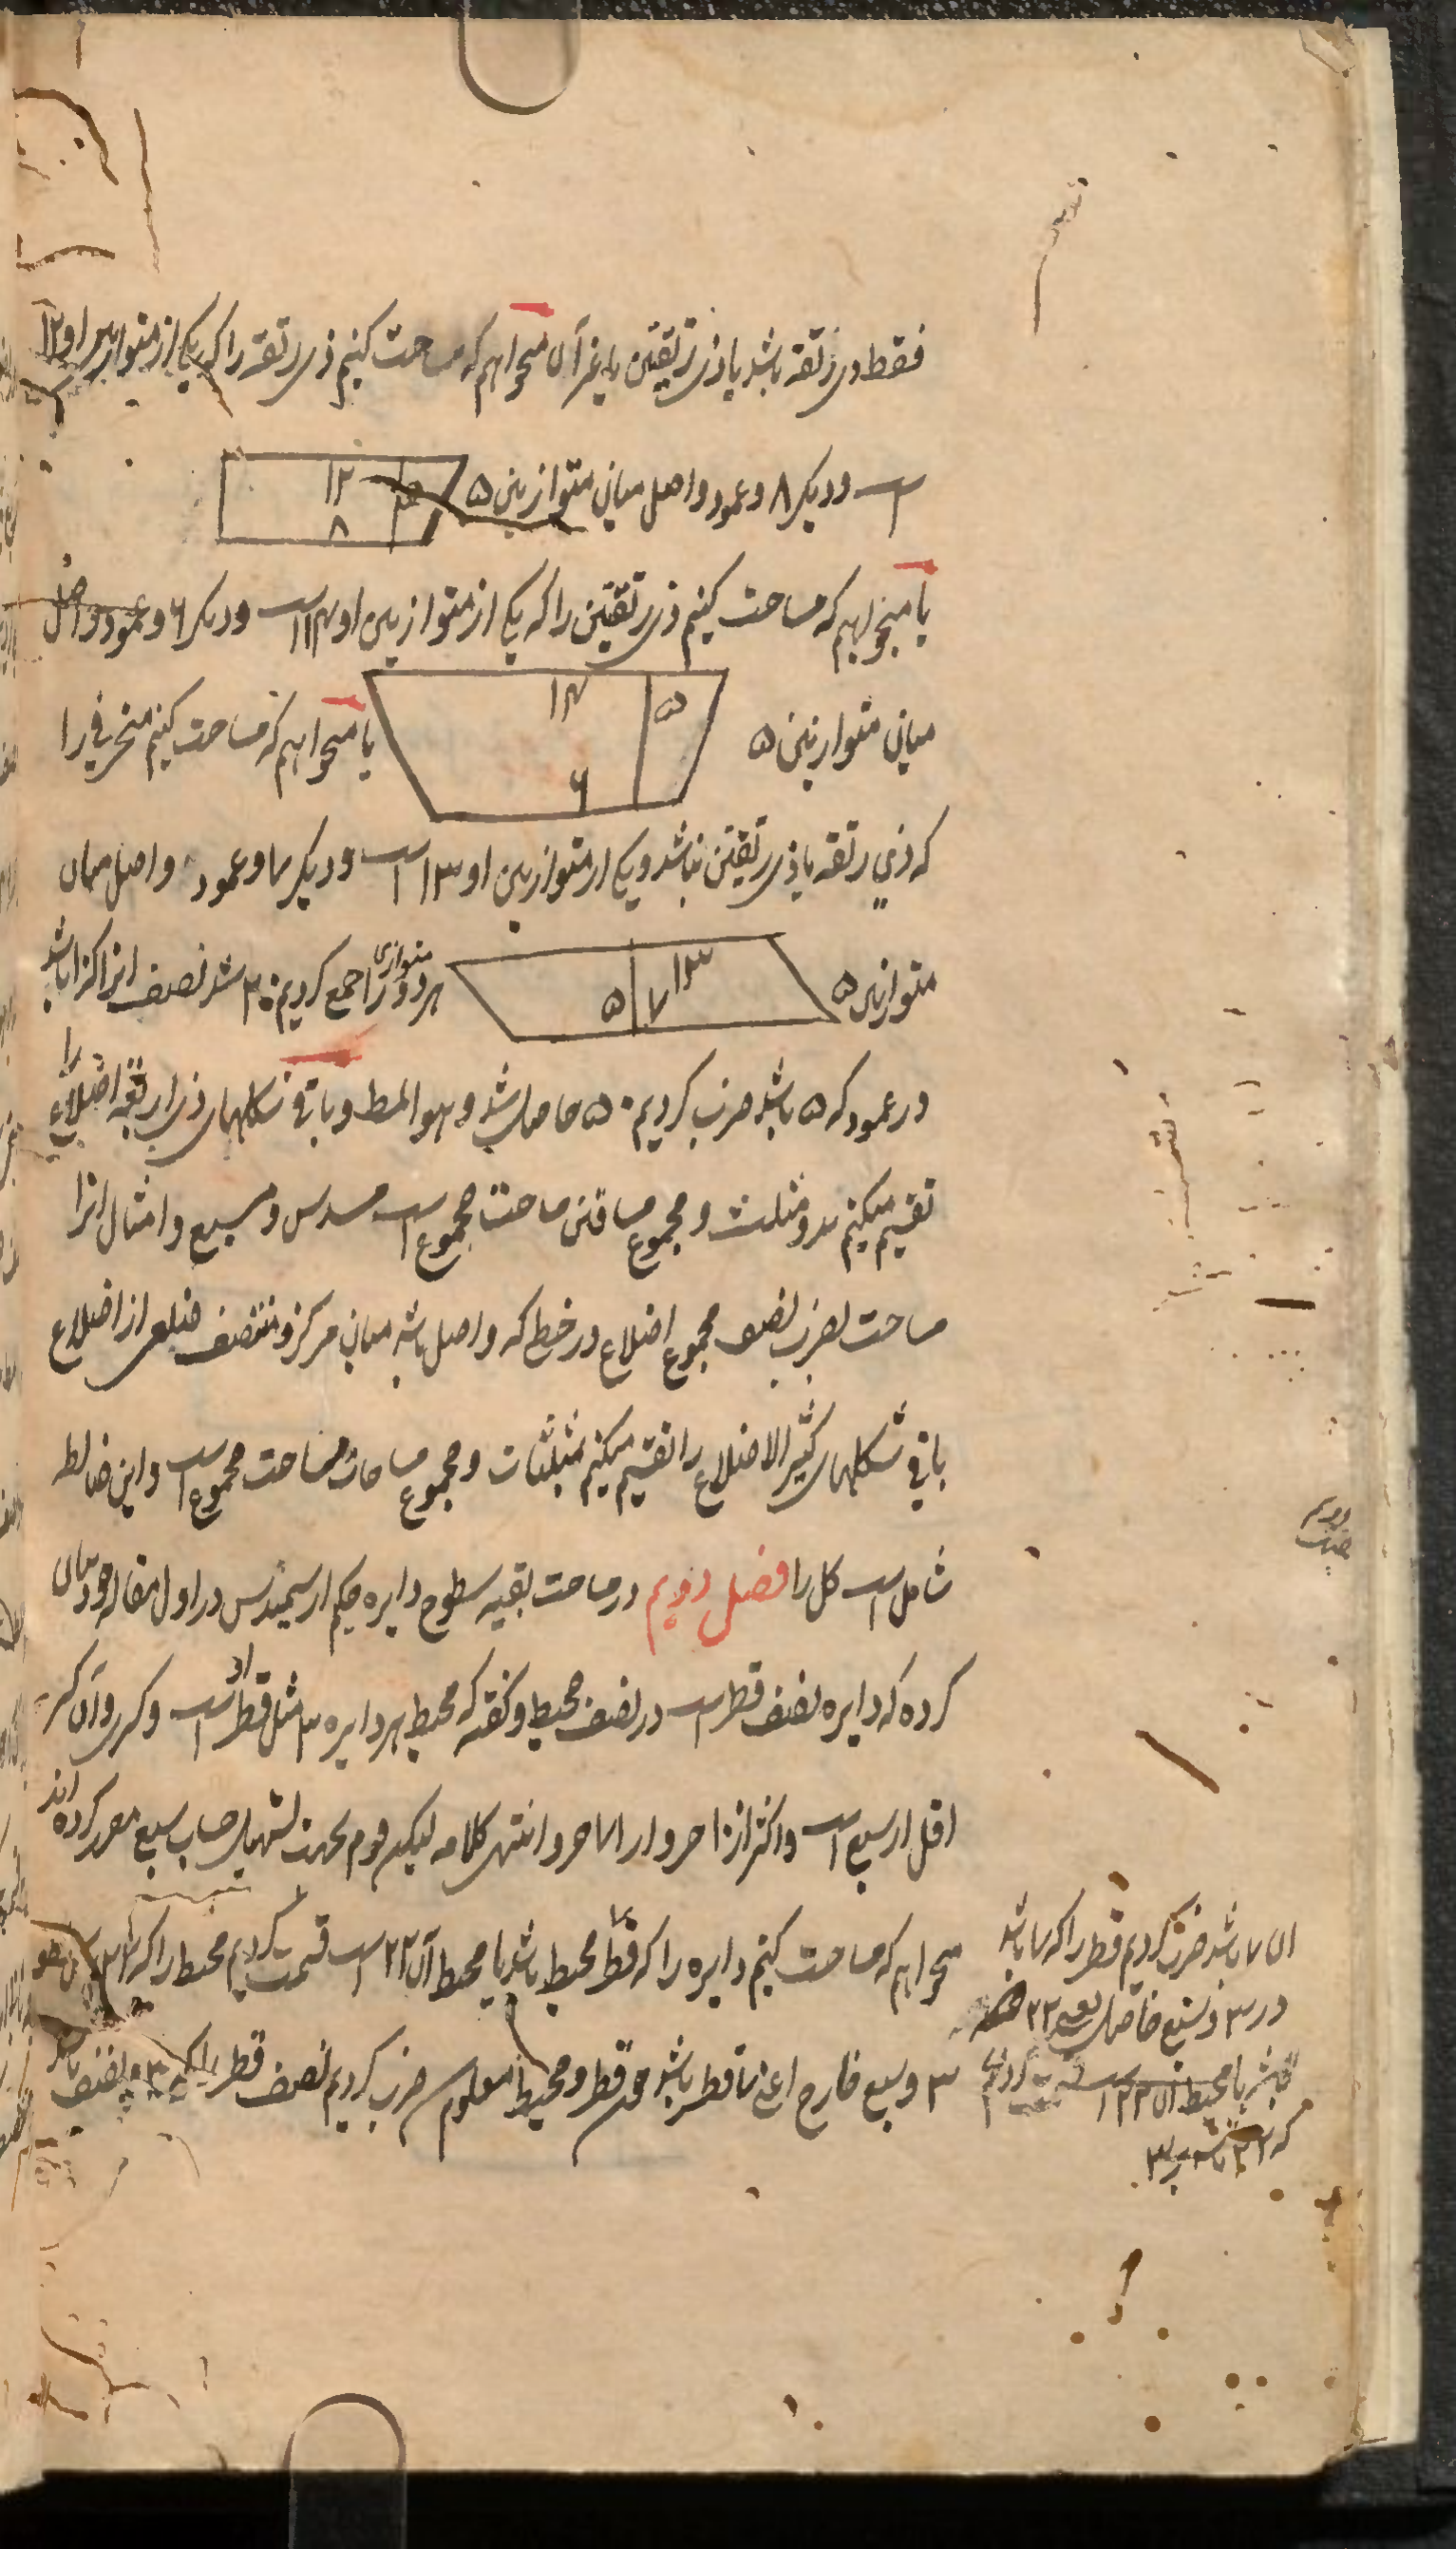 فقط ذی زنقه باشد یا ذی زنقتین یا غیر آن میخواهم که مساحت کنیم ذی زنقه را که یکی از متوازیین او ۱۲
است و دیکر ۸ و عمود واصل میان متوازیین ۵
۱۲
۸
یا میخواهیم که مساحت کنیم ذی زنقتین را که یکی از متوازیین او ۱۴ است و دیکر ۶ و عمود واصل
میان متوازیین ۵
۱۴
۵
۶
یا میخواهم که مساحت کنیم منحرفی را
که ذی زنقه یا ذی زنقتین نباشد و یکی از متوازیین او ۱۳ است و دیکر ۷ و عمود واصل میان
متوازیین ۵
۱۳
۷
۵
هر دو متوازی را جمع کردیم ۲۰ شد نصف انرا که ۱۰ باشد
در عمود که ۵ باشد ضرب کردیم ۵۰ حاصل شد و هو المط و باقی شکلهای ذی اربعة اضلاع را
تقسیم میکنیم بدو مثلث و مجموع مساحتین مساحت مجموع است مسدس و مسبع و امثال انرا
مساحت بضرب نصف مجموع اضلاع در خطی که واصل باشد میان مرکز و منتصف ضلعی از اضلاع
باقی شکلهای کثیر الاضلاع را تقسیم میکنیم بمثلثات و مجموع مساحات مساحت مجموع است و این ضابطه
شامل است کل را فصل دویم در مساحت بقیه سطوح دایره حکیم ارسمیدس در اول مقاله خود بیان
کرده که دایره نصف قطر است در نصف محیط و گفته که محیط هر دایره ۳ مثل قطر او است و کسری و آن کسر
اقل از سبع است و اکثر از ۱۰ اجزو از ۷۱ جزو انتهی کلامه لیکن قوم بجهت تسهیل حساب سبع مقرر کرده اند
میخواهم که مساحت کنیم دایره را که قطر محیط باشد یا محیط آن ۲۲ است قسمت کردیم محیط را که ۲۲
۳ و سبع خارج اعنی ۷ قطر باشد چون قطر و محیط معلوم شد ضرب کردیم نصف قطر را که ۳ و نصف باشد
ان ۷ باشد ضرب کردیم قطر را که ۷ باشد
در ۳ و سبع حاصل ۲۲
باشد یا محیط ان ۲۲ است قسمت کردیم
که ۲۲ باشد بر ۳